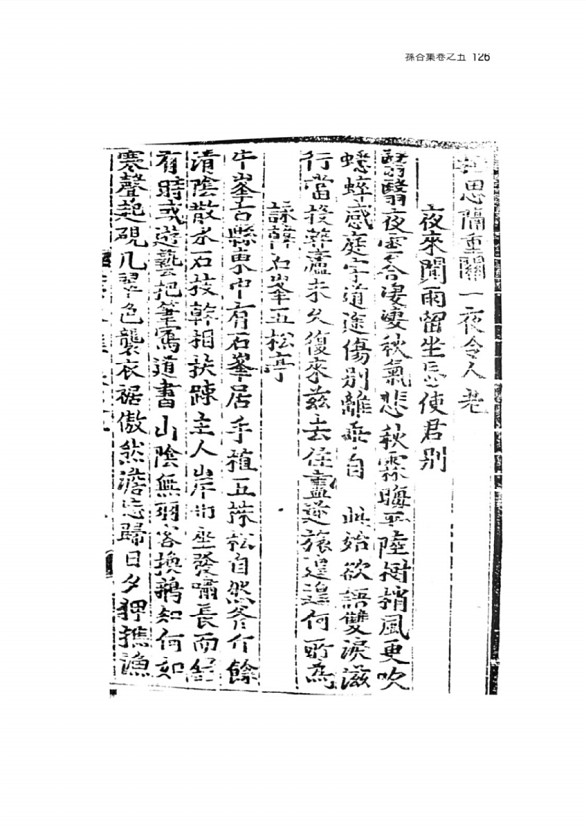 孫谷集卷之五 126
思隔重關一夜令人老
夜來聞雨留坐忘使君別
翳翳夜雲合淒淒秋氣悲秋霖晦平陸樹梢風更吹
蟋蟀感庭宇道途傷別離垂自 此始欲語雙淚滋
行當投弊廬未久復來茲去住盡逆旅遑遑何所為
詠韓石峯五松亭
牛峯古縣東中有石峯居手種五株松自然脩竹餘
清陰散水石枝幹相扶疎主人岸巾坐發嘯長而舒
有時或遊藝把筆寫道書山陰無羽客換鵝知何如
寒聲起硯几翠色襲衣裾傲然澹忘歸日夕狎樵漁